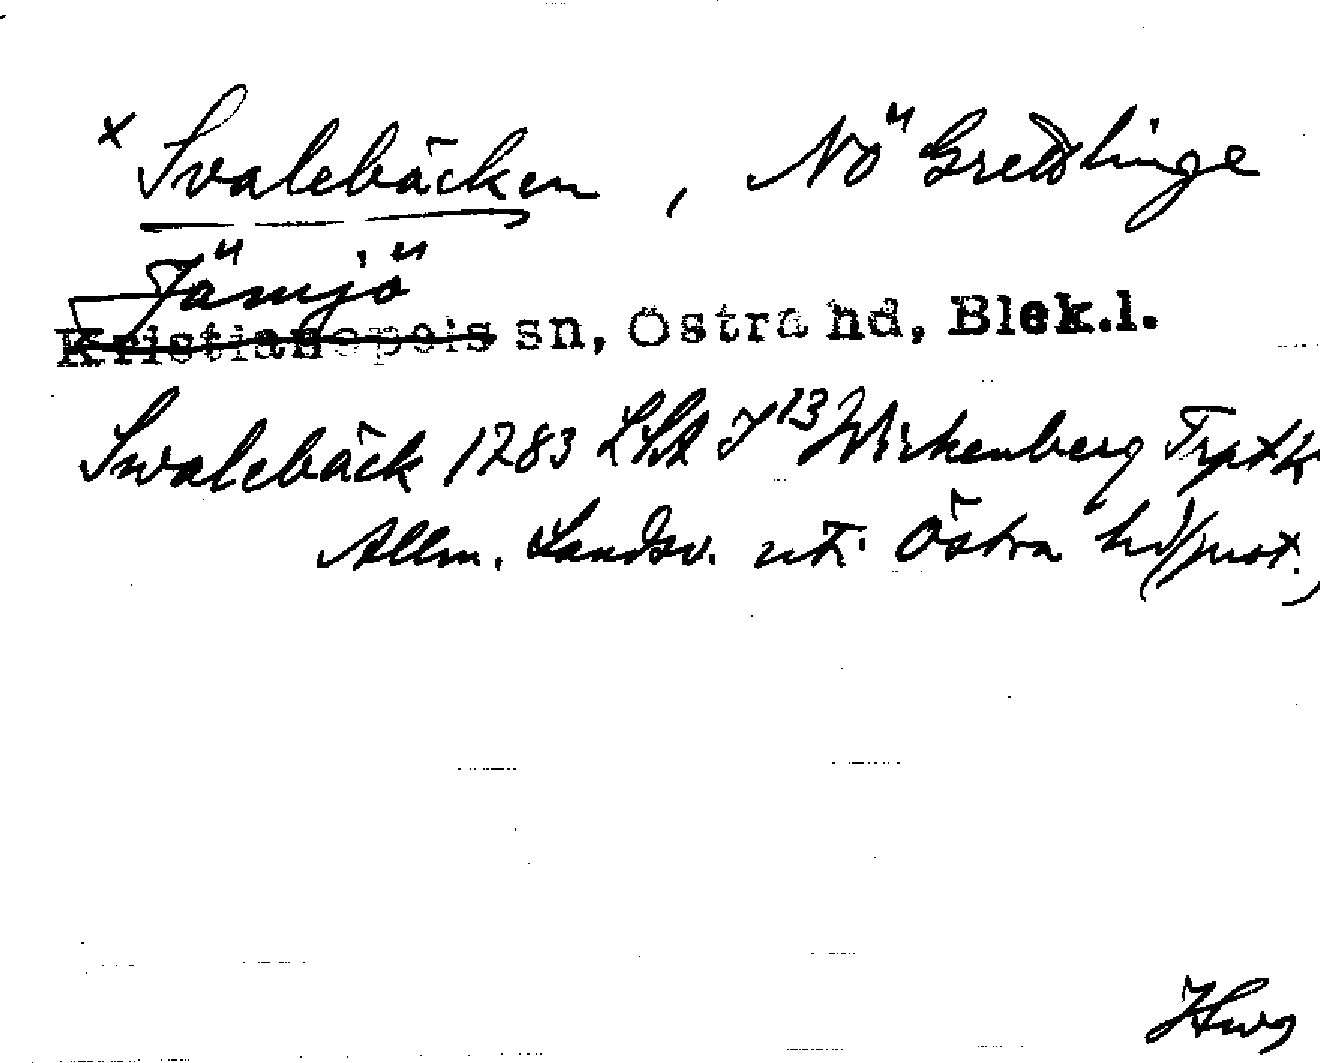 x Svalebäcken, NÖ Gredslinge
Jämjö
Kristianopels sn, Östra hd, Blek.l.
Swalebäck 1783 LSA J13 Wirkenberg
Allm. Landsv. Östra hd/prot.